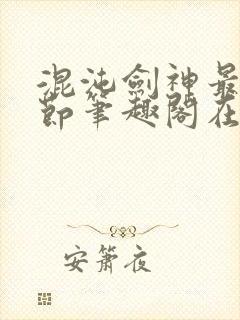 混沌劍神最
節筆趣閣在
安蕭夜